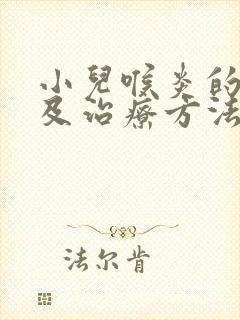 小兒喉炎的
及治療方法
法尔肯